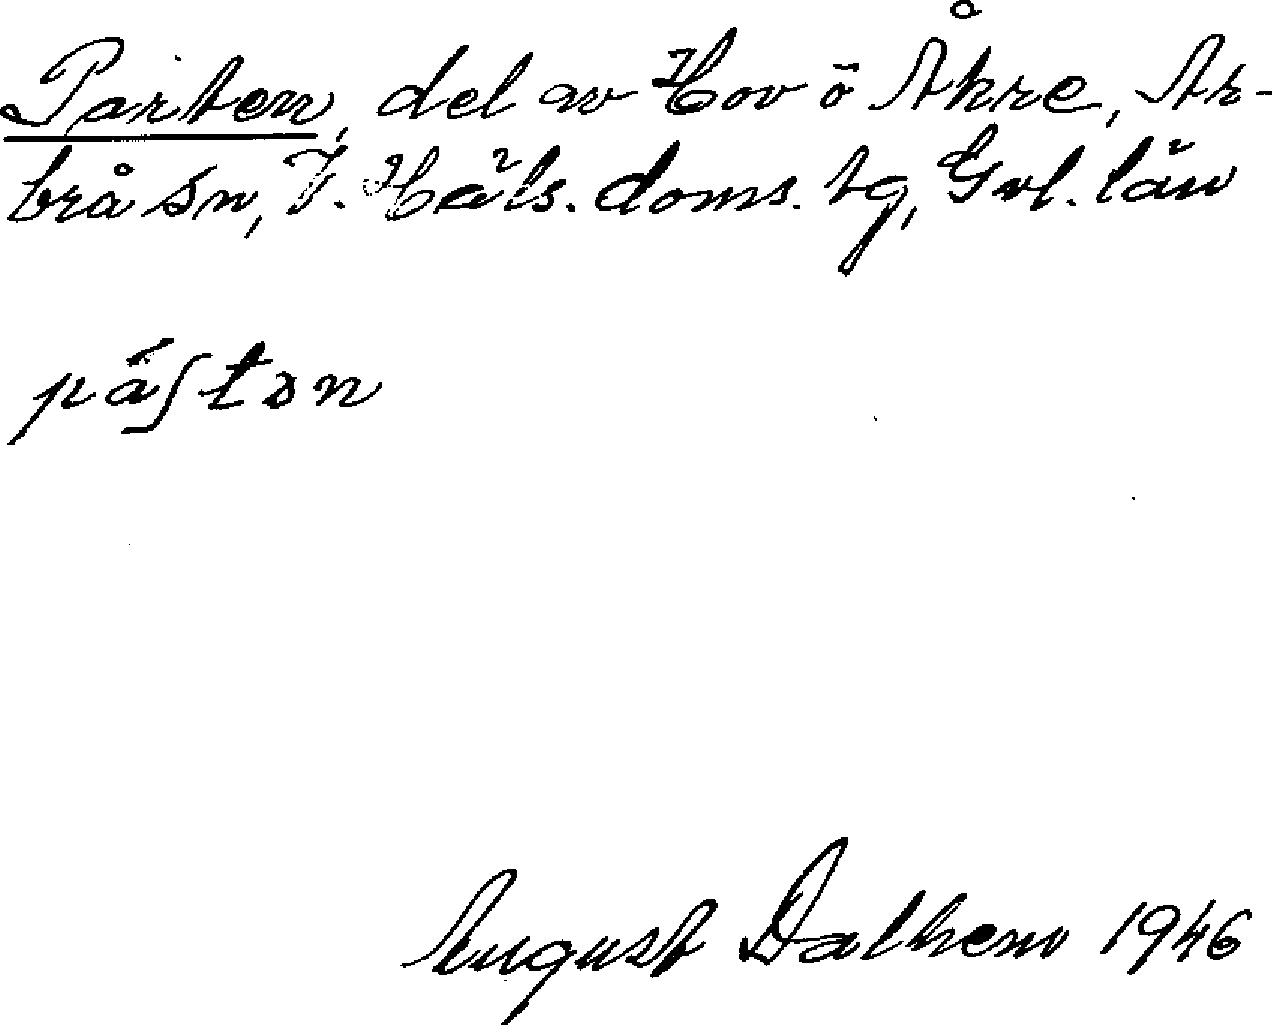 Parten, del av Hov o Åkre, Ar-
brå sn, V. Häls. doms. tg, Gvl. län
påʃtən
August Dalhem 1946